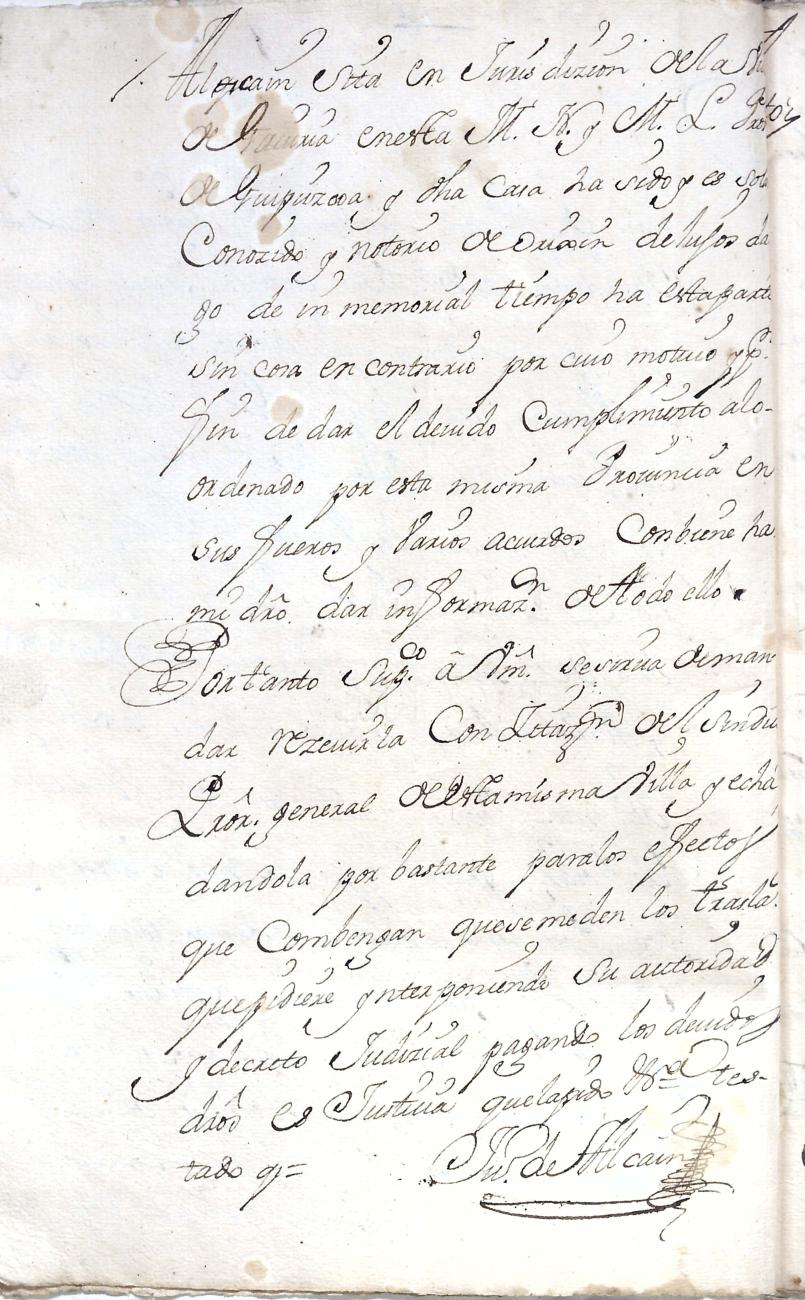 Alcain sita en Jurisdizion de la
de enesta M. N. y M. L.
de Guipuzcoa y dha Casa ha sido y es
Conozido y notorio de orixin de hijos da
go de in memorial tiempo ha esta parte
sin cosa en contrario por cuio motiuo y pª
fin de dar el deuido Cumplimiento alo-
ordenado por esta misma Prouincia en
sus fueros y Varios acuerdos Conbiene ha
mi dro. dar informazn. de todo ello
Por tanto Supco. â Vm. se sirua de man
dar rezeuirla Con Zittazn. del Sindi
Pror. general de esta misma Villa y
dandola por bastante paralos effectos
que Combengan quesemeden los trasla
quepidiere ynterponiendo su autoridad
y decreto Judizial pagando los deuidos
dros es Justicia quelapido tes-
tado q=
Juº. de Alcain